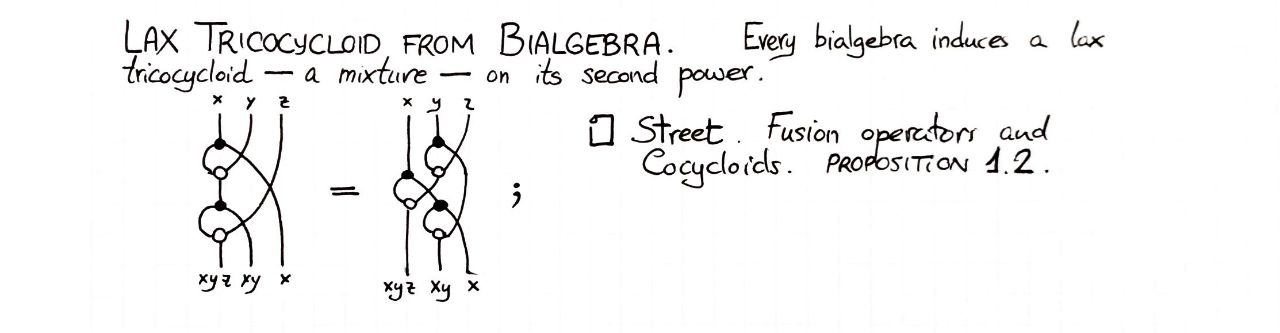 LAX TRICOCYCLOID FROM BIALGEBRA. Every bialgebra induces a lax
tricocycloid — a mixture — on its second power.
x y z x y z
□ Street. Fusion operators and
Cocycloids. PROPOSITION 1.2.
= ;
xyz xy x xyz xy x